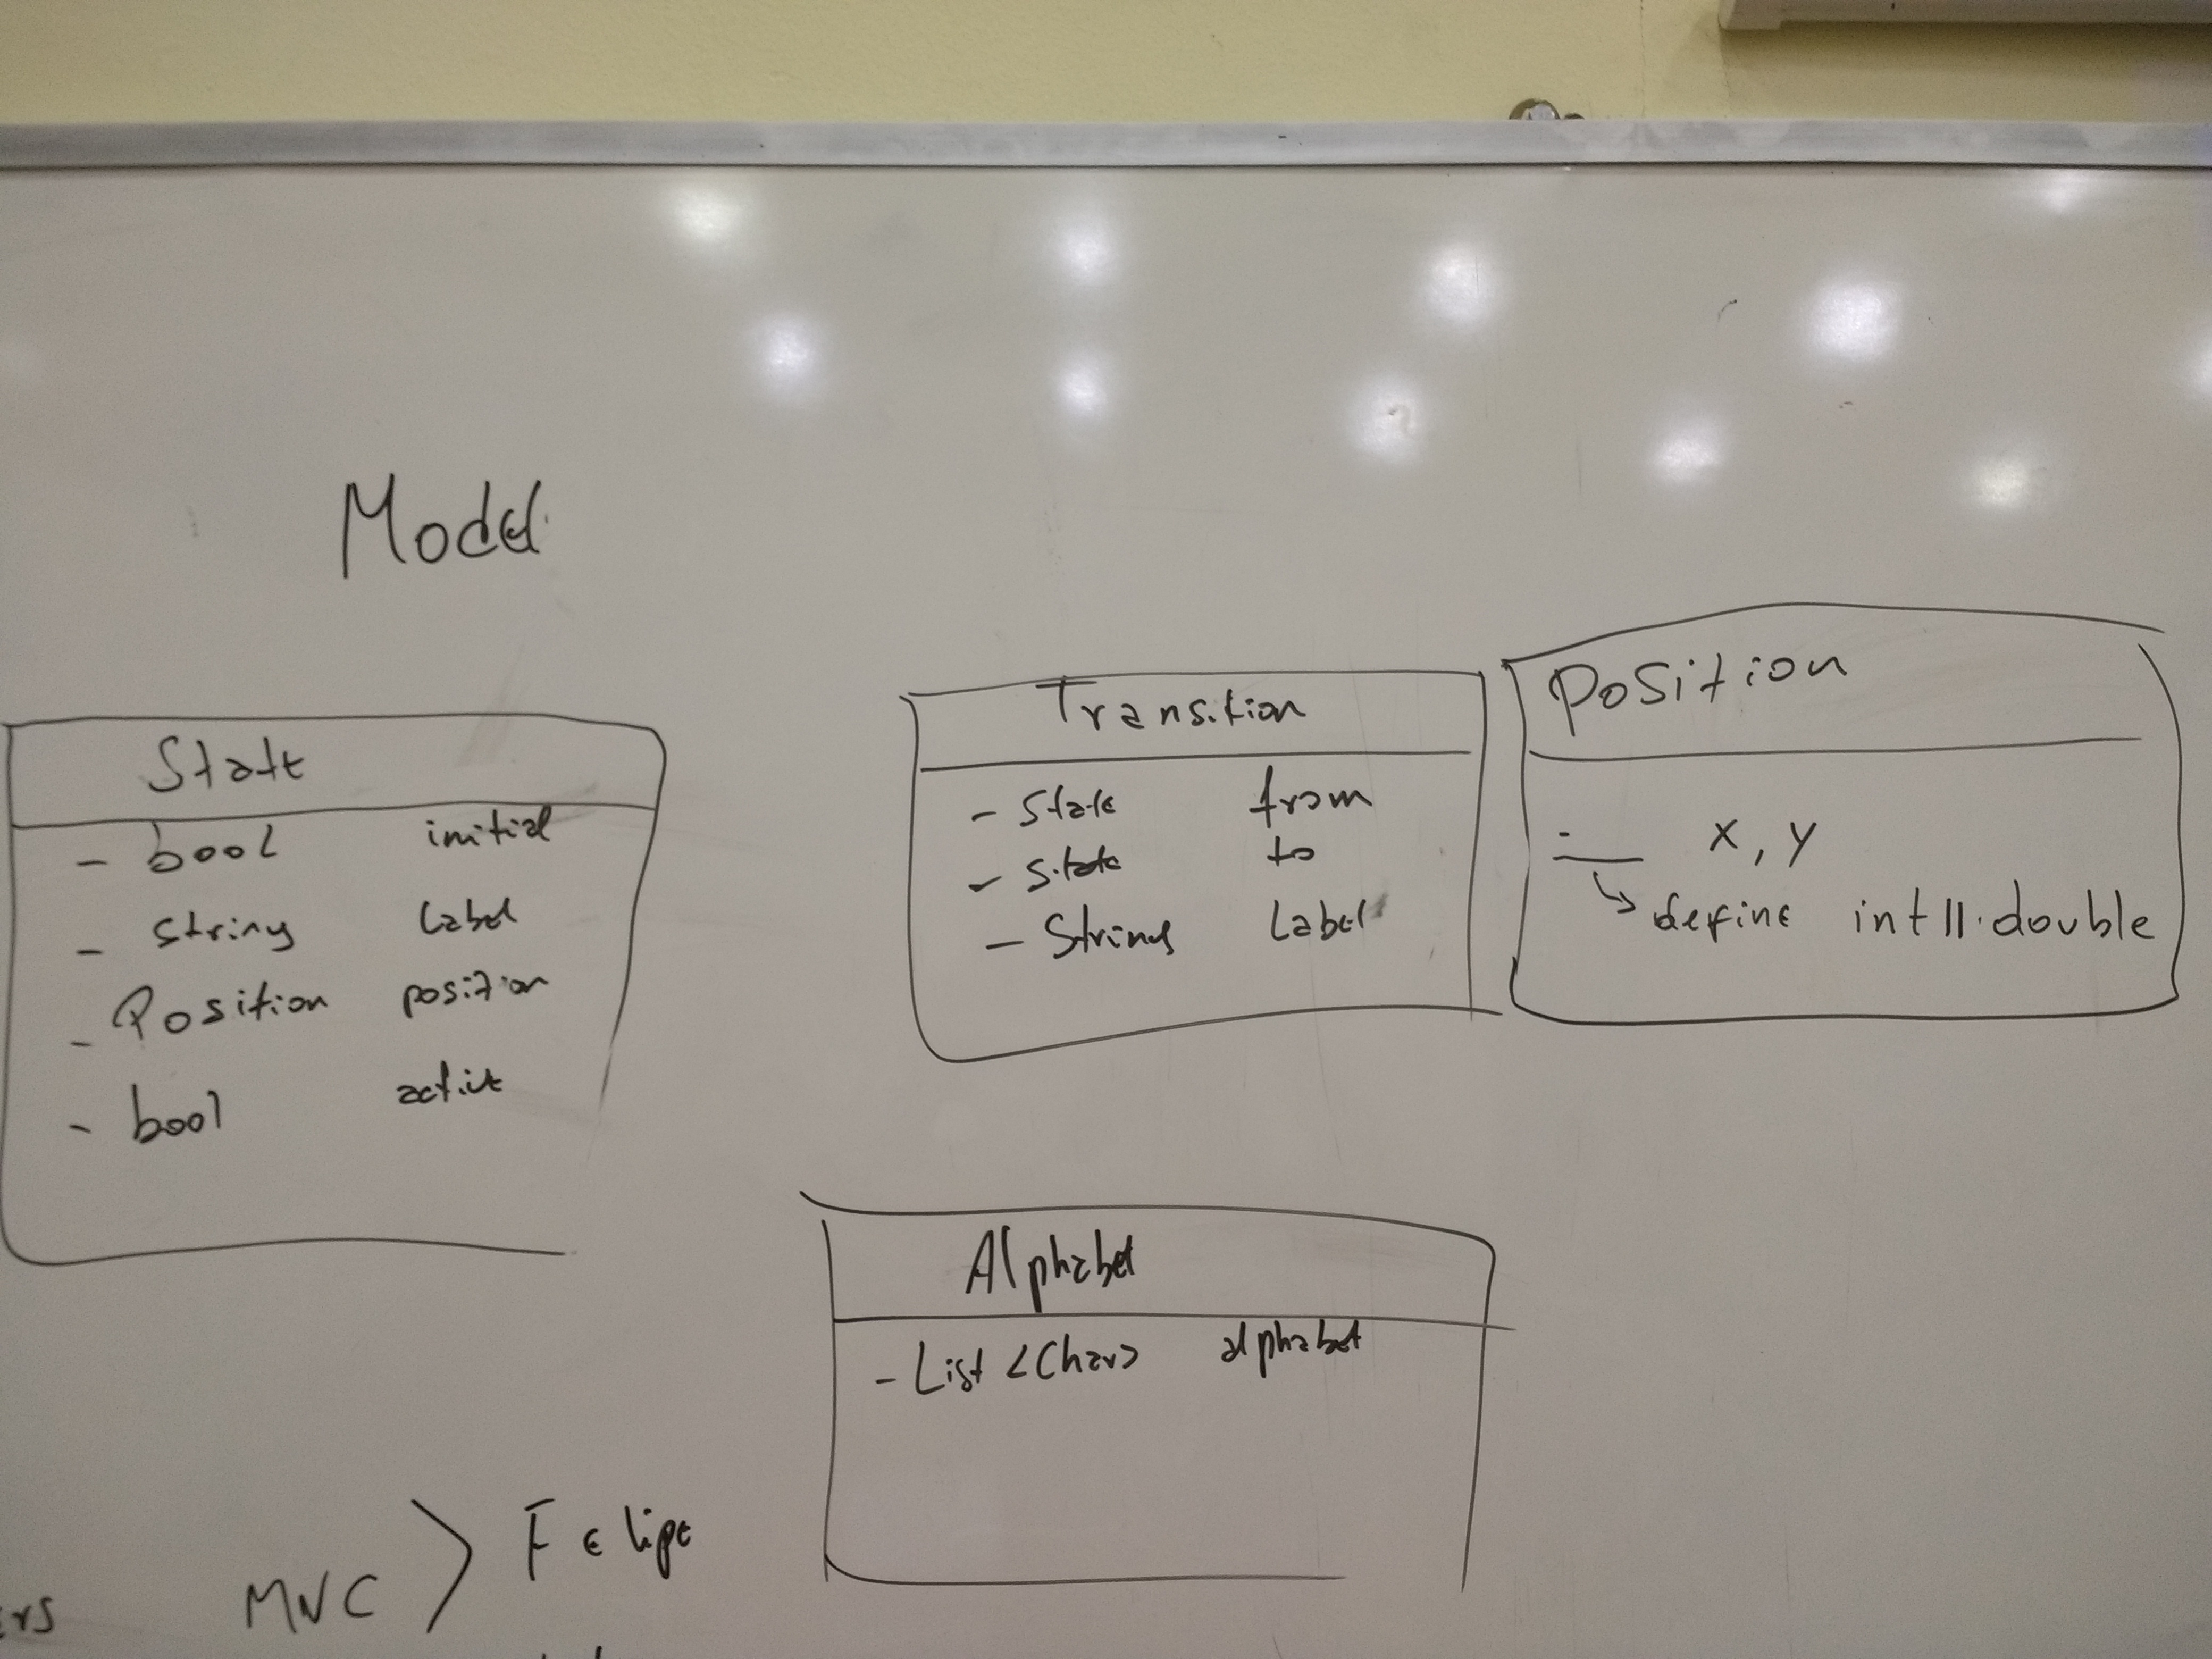 Model
State
- bool initial
- string Label
- Position position
- bool active
Transition
- State from
- State to
- String Label
Position
- __ x, y
↳ define int || double
Alphabet
- List <Char> alphabet
MVC > Felipe
ers